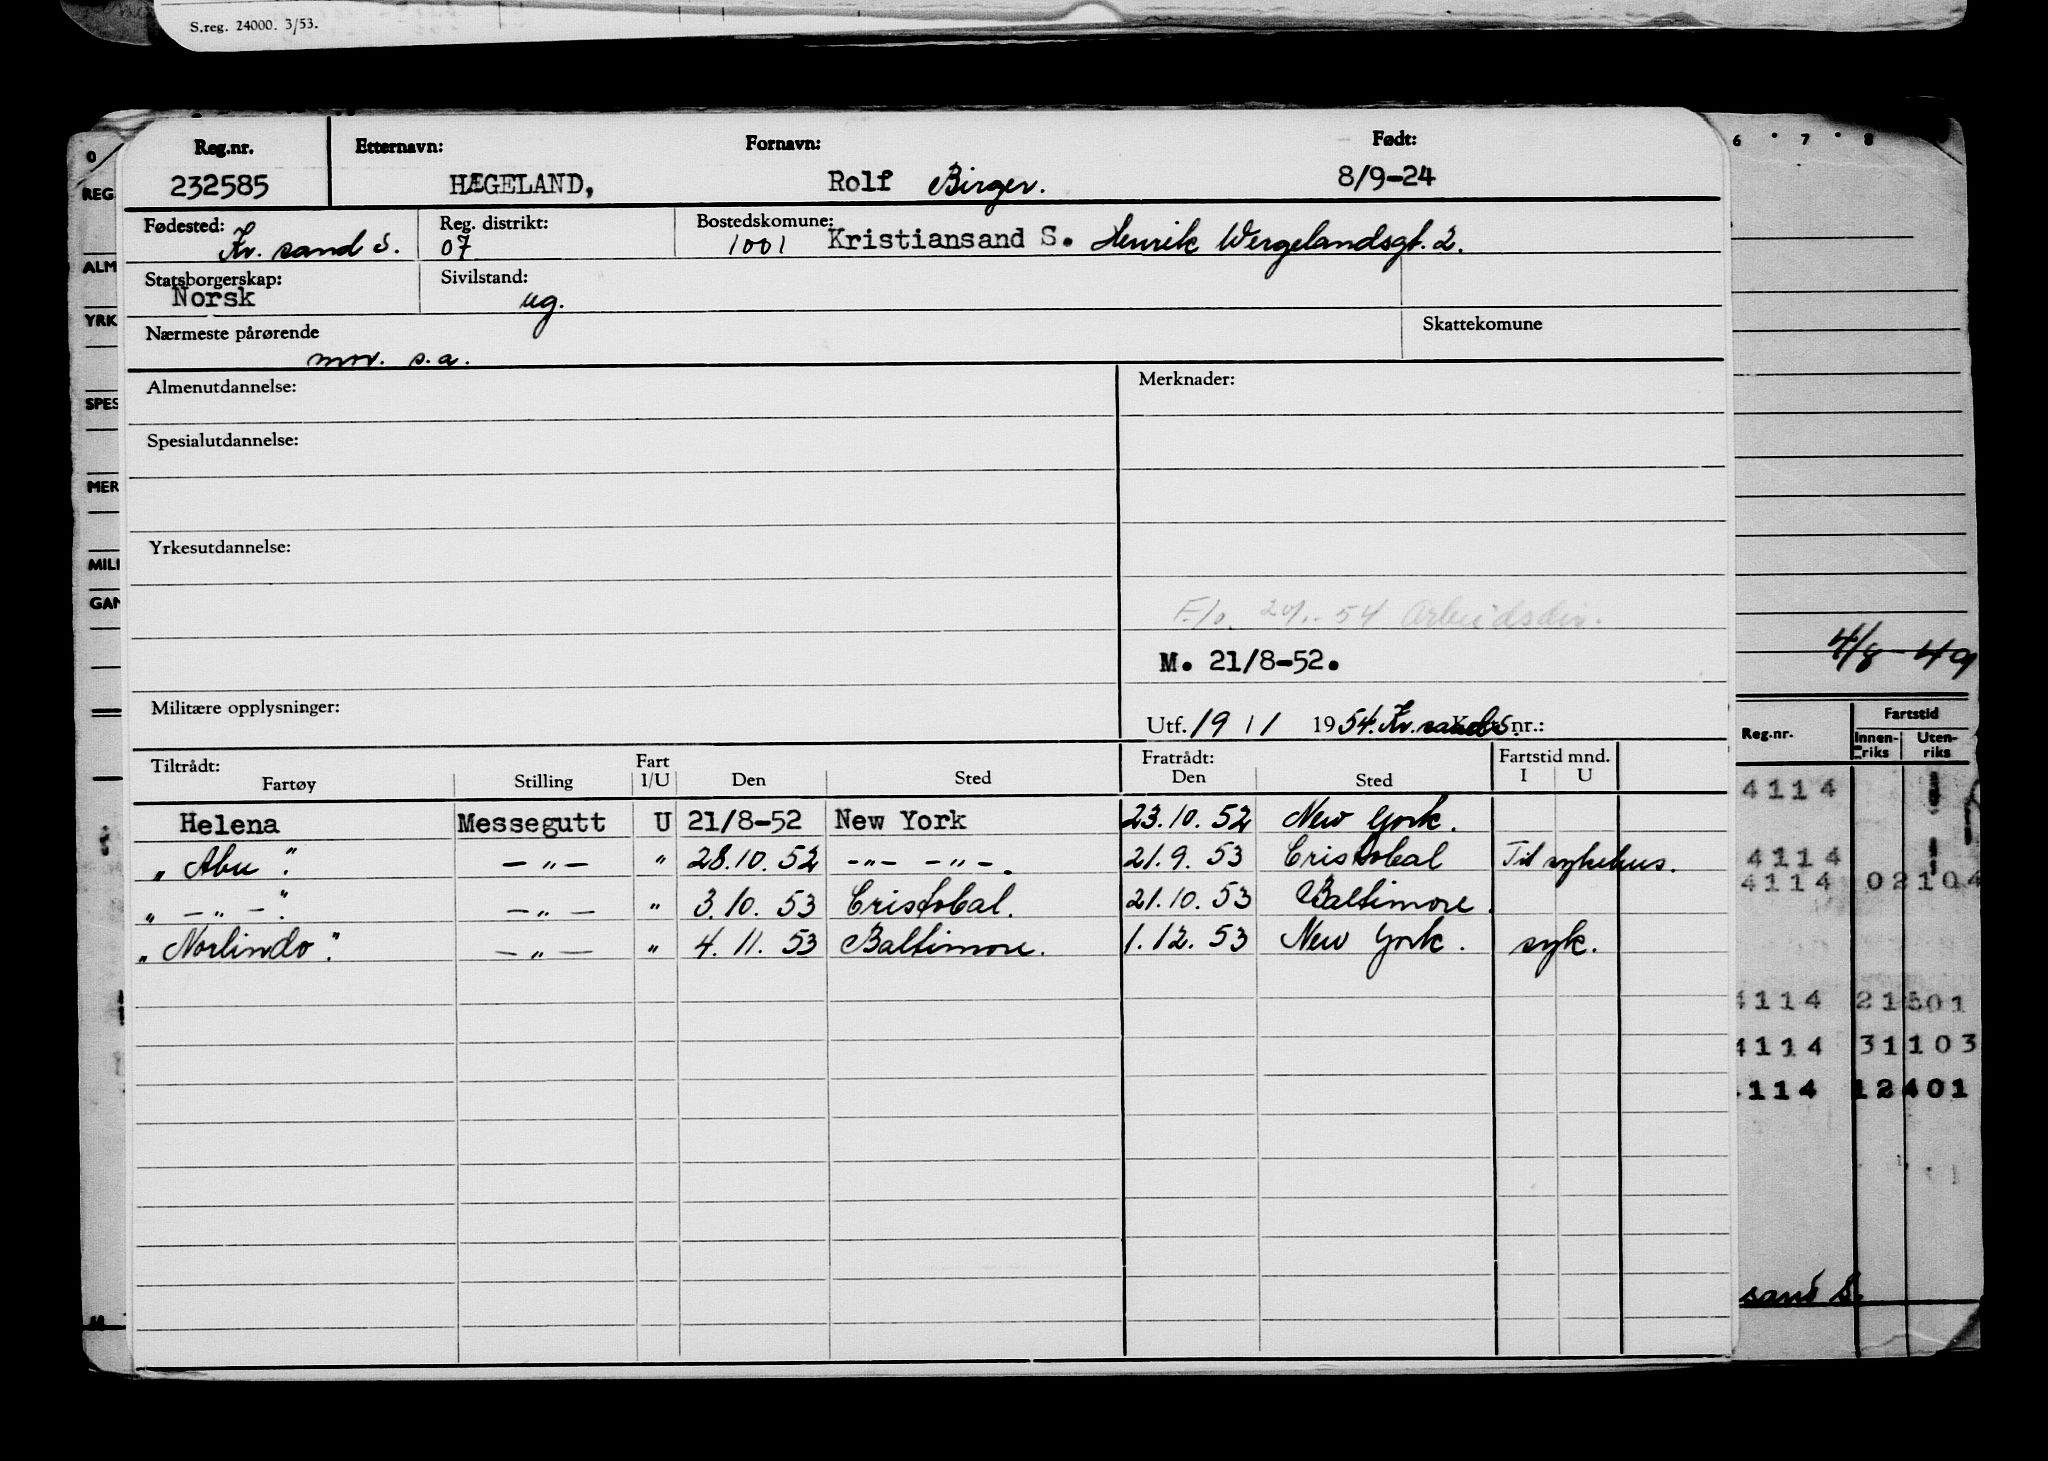 S.reg. 24000. 3/53.
Reg.nr. Etternavn: Fornavn: Født:
232585 HÆGELAND, Rolf Birger. 8/9-24
Fødested: Reg. distrikt: Bostedskomune:
Kr. sand S. 07 1001 Kristiansand S. Henrik Wergelandsgt. 2.
Statsborgerskap: Sivilstand:
Norsk ug.
Nærmeste pårørende Skattekomune
mor. s.a.
Almenutdannelse: Merknader:
Spesialutdannelse:
Yrkesutdannelse:
54 Arbeidsdir.
M. 21/8-52.
Militære opplysninger:
Utf. 19 / 1 1954. Kr. sand S. nr.:
Tiltrådt: Fart Fratrådt: Fartstid mnd.
Fartøy Stilling I/U Den Sted Den Sted I U
Helena Messegutt U 21/8-52 New York 23.10.52 New York.
"Abu". -"- " 28.10.52 -"- -"-. 21.9.53 Cristobal Til sykehus.
"-"-". -"- " 3.10.53 Cristobal. 21.10.53 Baltimore.
"Norlindo". -"- " 4.11.53 Baltimore. 1.12.53 New York. syk.
0
REG
ALM
YRK
SPES
MER
MILI
GAN
6 7 8
4/8-49
Reg.nr. Fartstid
Innenriks Utenriks
4114
4114
4114 02104
4114 21501
4114 31103
114 12401
sand S.